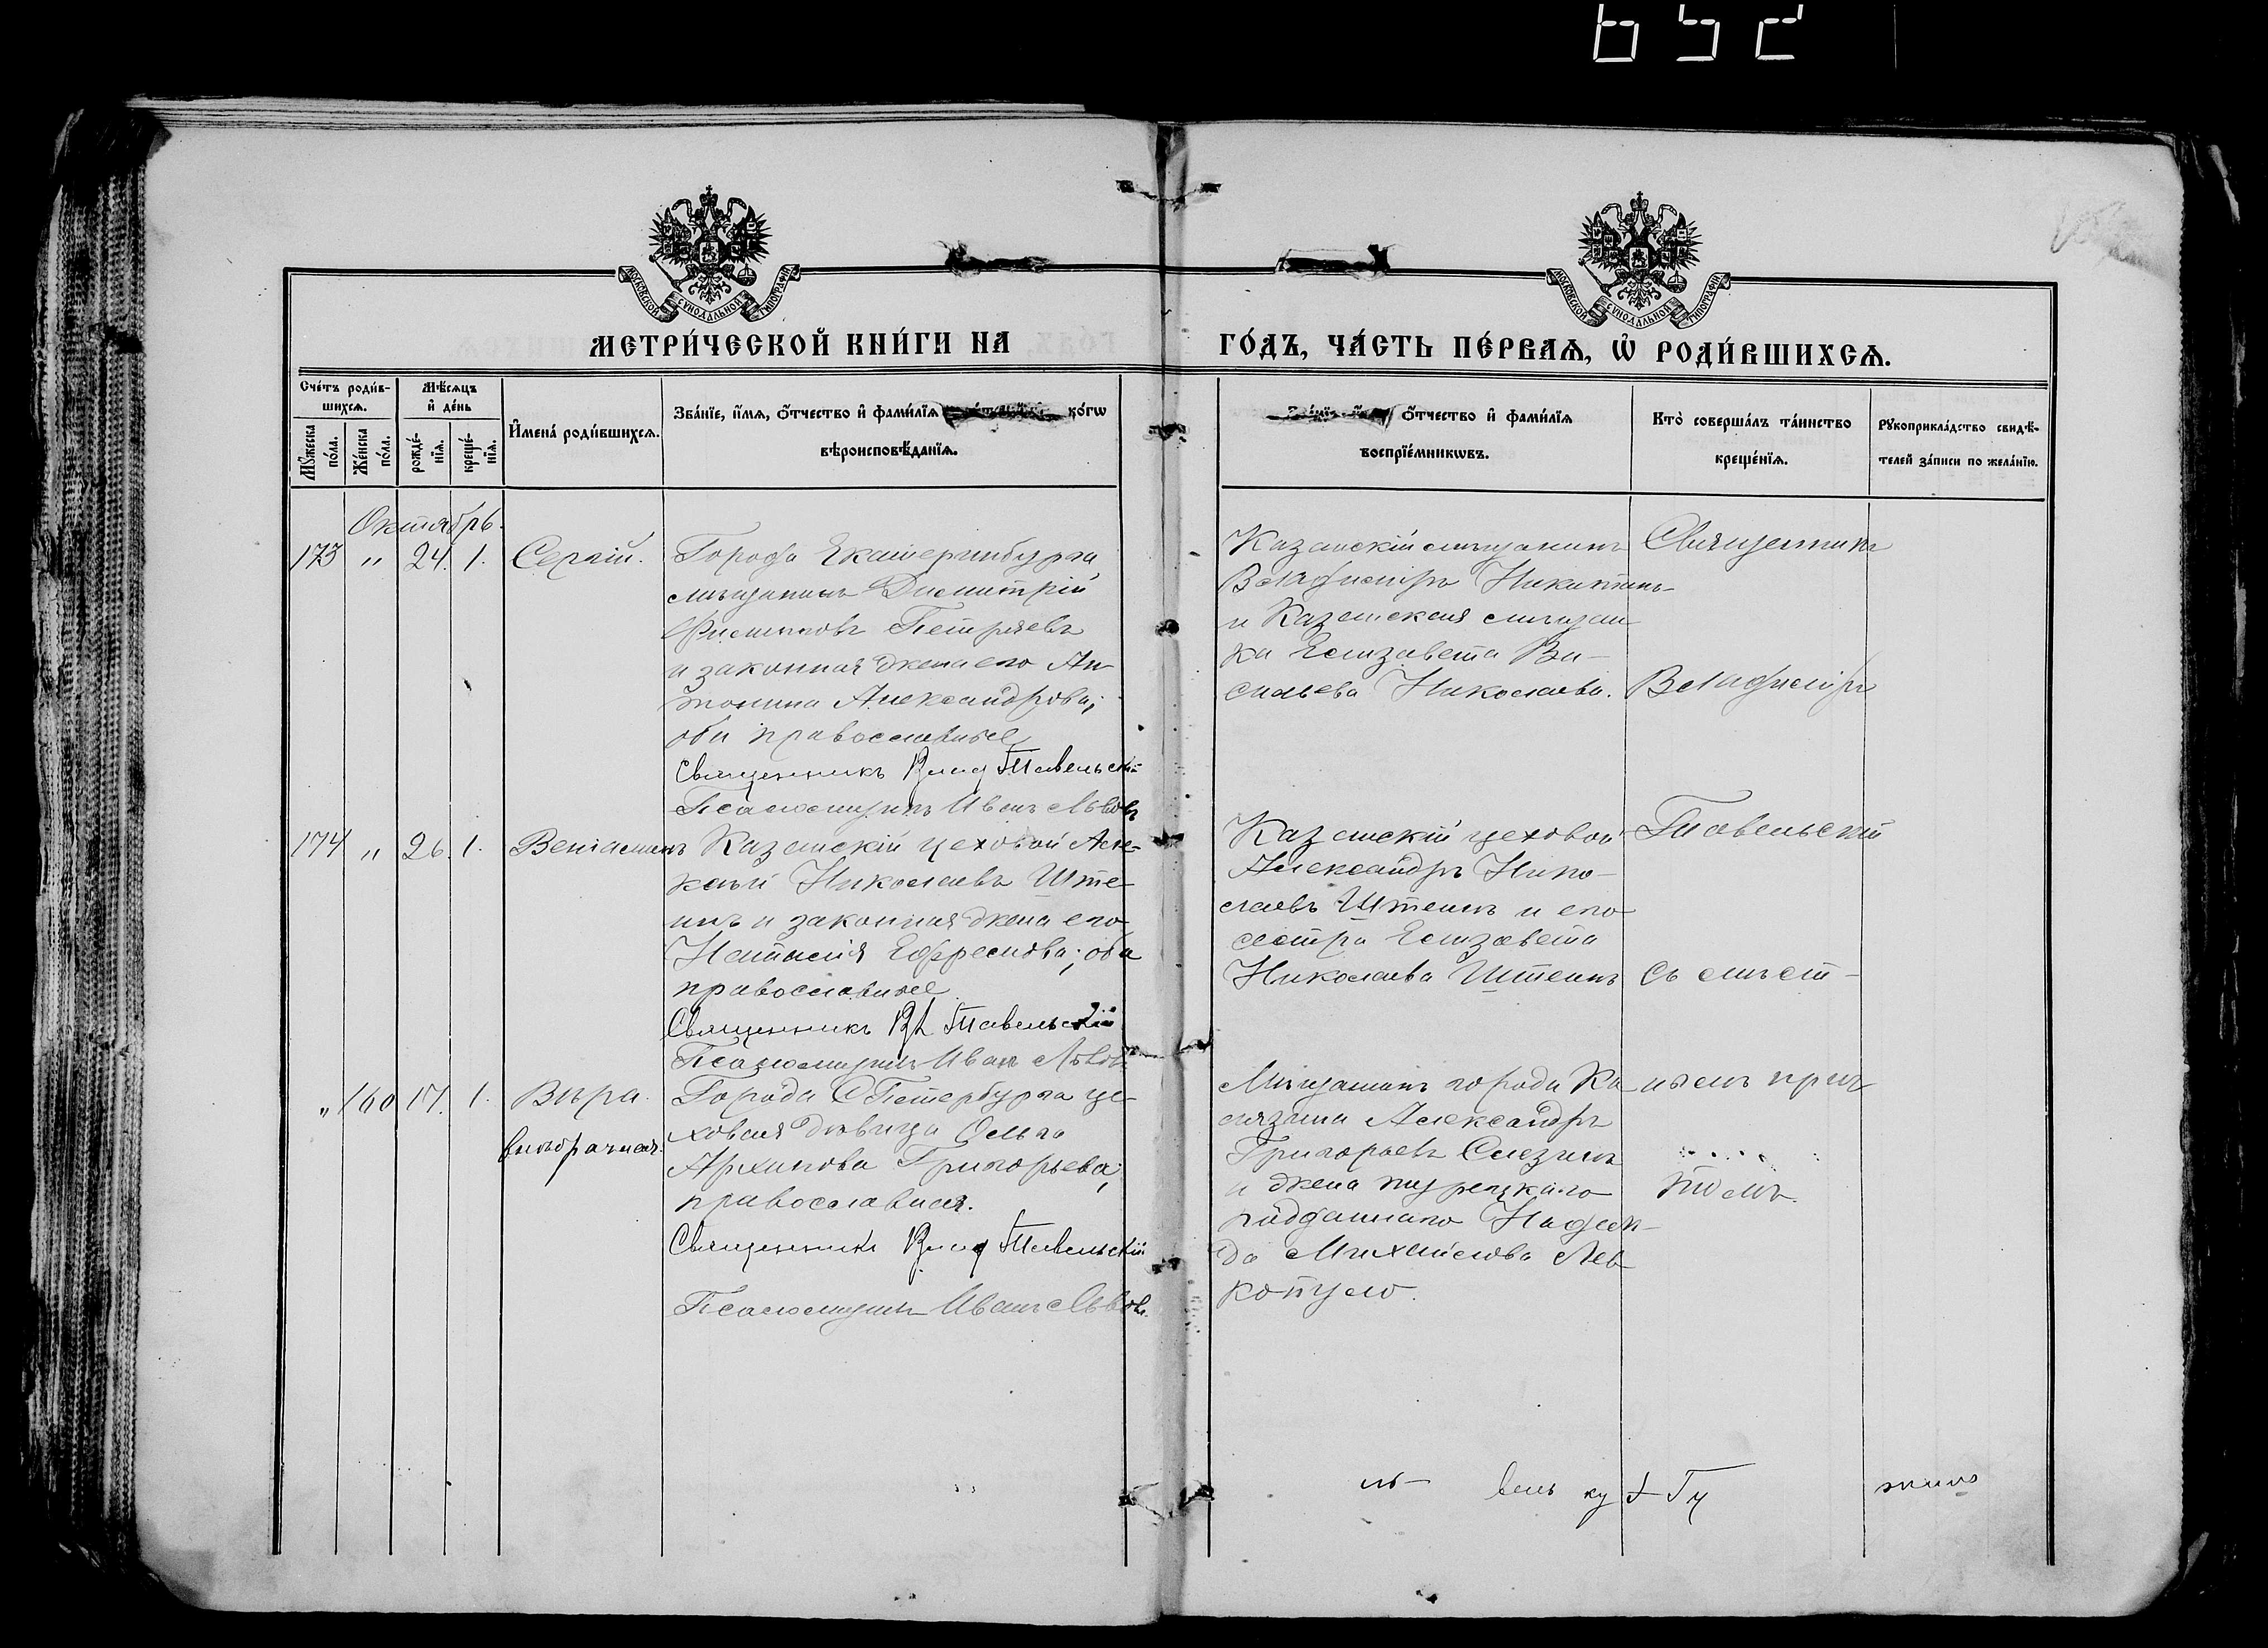 МОСКОВСКОЙ СѴНОДАЛЬНОЙ ТИПОГРАФІИ
МОСКОВСКОЙ СѴНОДАЛЬНОЙ ТИПОГРАФІИ
МЕТРИ́ЧЕСКОЙ КНИ́ГИ НА
ГО́ДЪ, ЧА́СТЬ ПЕ́РВАѦ, Ѽ РОДИ́ВШИХСѦ.
Сче́тъ роди́в-
шихсѧ.
Мꙋ́жеска по́ла.
Же́нска по́ла.
Мѣ́сѧцъ
и҆ де́нь
рожде́-
нїѧ.
креще́-
нїѧ.
И҆мена̀ роди́вшихсѧ.
Зва́нїе, и҆́мѧ, ѻ҆́тчество и҆ фами́лїѧ ко́гѡ
вѣроисповѣ́данїѧ.
ѻ҆́тчество и҆ фами́лїѧ
воспрїе́мникѡвъ.
Кто̀ соверша́лъ та́инство
креще́нїѧ.
Рꙋкоприкла́дство свидѣ́-
телей за́писи по жела́нїю.
Октябрь.
173 " 24. 1. Сергій.
Города Екатеринбурга
мѣщанинъ Димитрій
Филиповъ Петряевъ
и законная жена его Ан-
тонина Александрова;
оба православные
Священникъ Влад Тавельскій
Псаломщикъ Иванъ Львовъ
Казанскій мѣщанинъ
Владиміръ Никитинъ
и Казанская мѣщан-
ка Елизавета Ва-
сильева Николаева.
Священникъ
Владиміръ
174 " 26. 1. Веніаминъ
Казанскій цеховой Алек-
сѣй Николаевъ Ште-
инъ и законная жена его
Наталія Ефремова; оба
православные
Священникъ Вл Тавельскій
Псаломщикъ Иванъ Львовъ
Казанскій цеховой
Александръ Нико-
лаевъ Штеинъ и его
сестра Елизавета
Николаева Штеинъ
Тавельскій
съ мѣст-
" 160 17. 1. Вѣра.
внѣбрачная.
Города С Петербурга це-
ховая дѣвица Ольга
Архипова Григорьева;
православная.
Священникъ Влад Тавельскій
Псаломщикъ Иванъ Львовъ.
Мѣщанинъ города Ка-
лязина Александръ
Григорьевъ Слезинъ
и жена турецкаго
подданнаго Надеж-
да Михайлова Лев-
копуло.
нымъ прич
томъ.